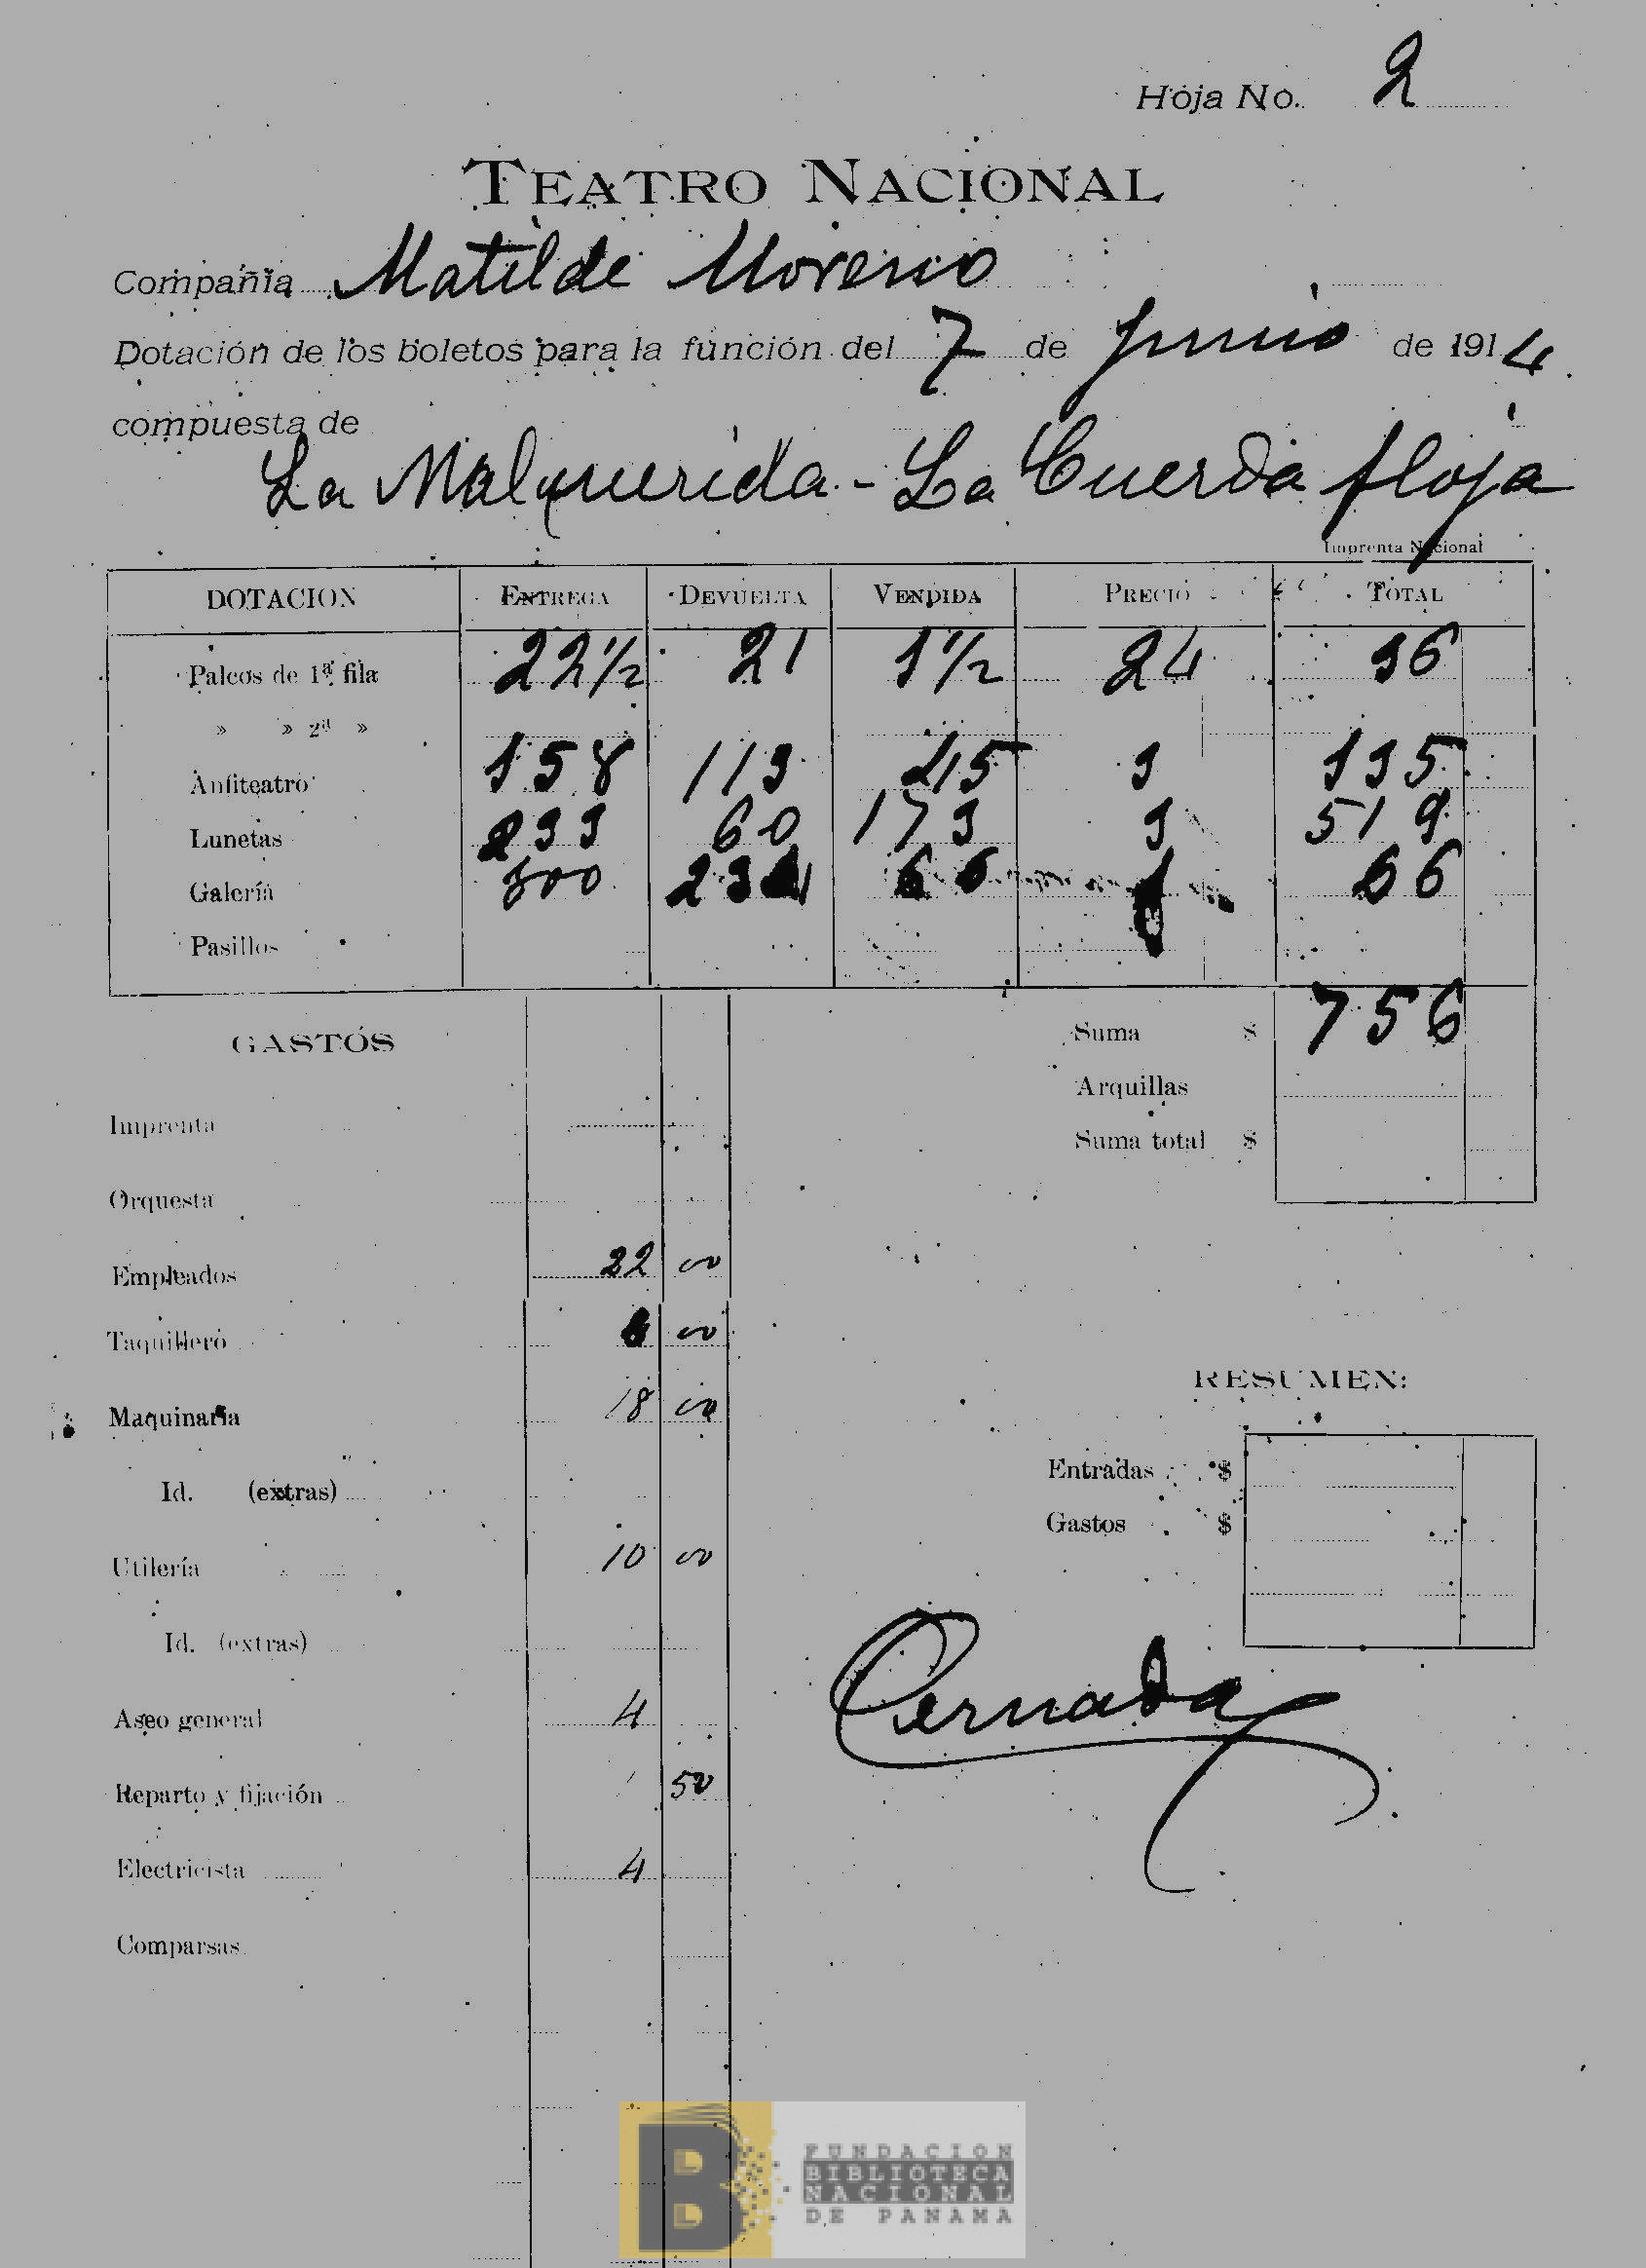 Hoja No. 2
TEATRO NACIONAL
Compañía Matilde Moreno
Dotación de los boletos para la función del 7 de junio de 1914
compuesta de
La Malquerida - La Cuerda floja
Imprenta Nacional
DOTACION ENTREGA DEVUELTA VENDIDA PRECIO TOTAL
Palcos de 1ª fila 22 1/2 21 1 1/2 24 36
» » 2ª »
Anfiteatro 158 113 45 3 135
Lunetas 233 60 173 3 519
Galería 300 234 66 1 66
Pasillos
Suma $ 756
GASTOS
Arquillas
Imprenta
Suma total $
Orquesta
Empleados 22 00
Taquillero 6 00
RESUMEN:
Maquinaria 18 00
Entradas $
Id. (extras)
Gastos $
Utilería 10 00
Id. (extras)
Aseo general 4
Reparto y fijación 1 50
Electricista 4
Comparsas
FUNDACION
BIBLIOTECA
NACIONAL
DE PANAMA